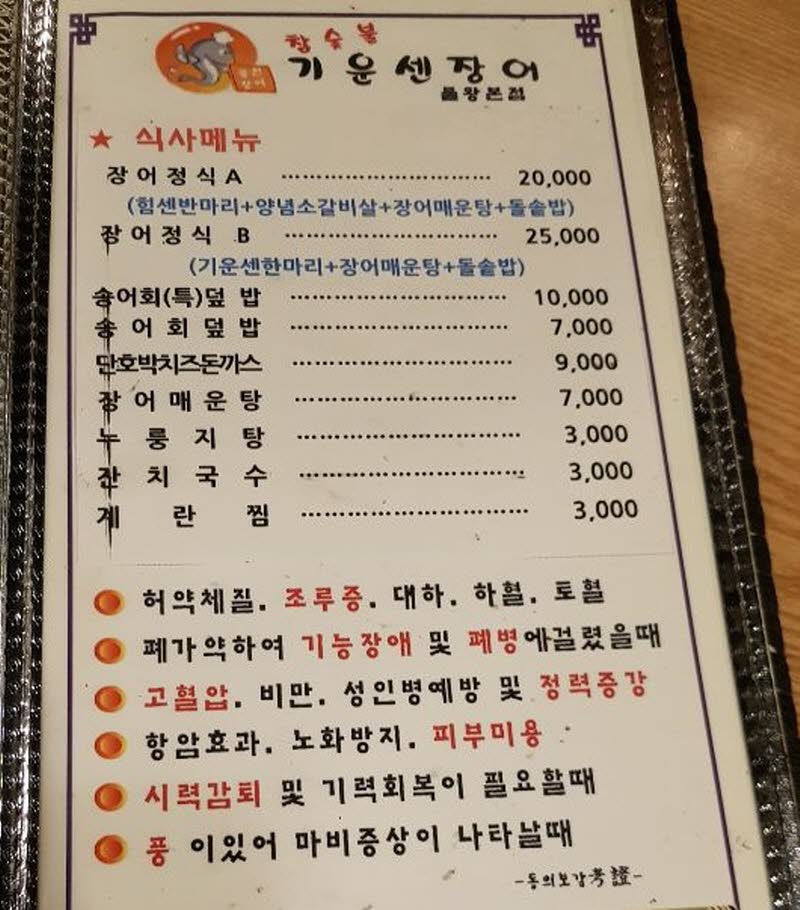 참숯불
기운센장어
율왕본점
★ 식사메뉴
장어정식 A ………………………… 20,000
(힘센반마리+양념소갈비살+장어매운탕+돌솥밥)
장어정식 B ………………………… 25,000
(기운센한마리+장어매운탕+돌솥밥)
송어회(특)덮밥 ………………………… 10,000
송어회덮밥 ………………………… 7,000
단호박치즈돈까스 ………………………… 9,000
장어매운탕 ………………………… 7,000
누룽지탕 ………………………… 3,000
잔치국수 ………………………… 3,000
계란찜 ………………………… 3,000
허약체질. 조루증. 대하. 하혈. 토혈
폐가약하여 기능장애 및 폐병에걸렸을때
고혈압. 비만. 성인병예방 및 정력증강
항암효과. 노화방지. 피부미용
시력감퇴 및 기력회복이 필요할때
풍 이있어 마비증상이 나타날때
-동의보감考證-